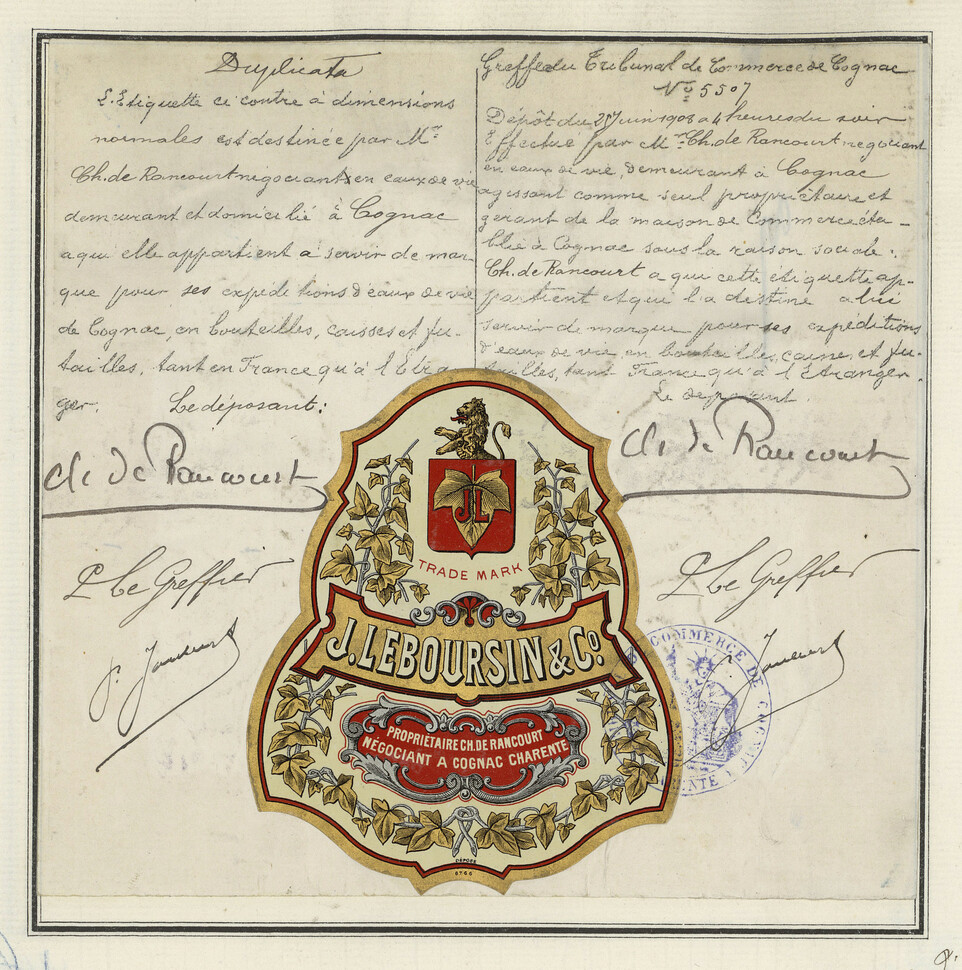 Duplicata
L'Etiquette ci contre à dimensions
normales est destinée par Mr
Ch. de Rancourt négociant en eaux de vie
demeurant et domicilié à Cognac
a qui elle appartient a servir de mar
que pour ses expéditions d'eaux de vie
de Cognac, en bouteilles, caisses et fu-
tailles, tant en France qu'à l'Etran
ger. Le déposant:
Ch de Rancourt
P Le Greffier
Greffe du Tribunal de Commerce de Cognac
No 5507
Dépôt du Juin 1908 a 4 heures du soir
Effectué par Mr Ch. de Rancourt negociant
en eaux de vie, demeurant à Cognac
agissant comme seul propriétaire et
gerant de la maison de Commerce éta-
blie à Cognac sous la raison sociale:
Ch. de Rancourt a qui cette étiquette ap-
partient et qui l'a destine a lui
servir de marque pour ses expéditions
d'eaux de vie en bouteilles, caisses, et fu-
tailles, tant France qu'à l'Etranger.
Le deposant.
Ch de Rancourt
P Le Greffier
COMMERCE DE COGNAC
JL
TRADE MARK
J. LEBOURSIN & Co.
PROPRIÉTAIRE CH. DE RANCOURT
NÉGOCIANT A COGNAC CHARENTE
DÉPOSÉ
6766